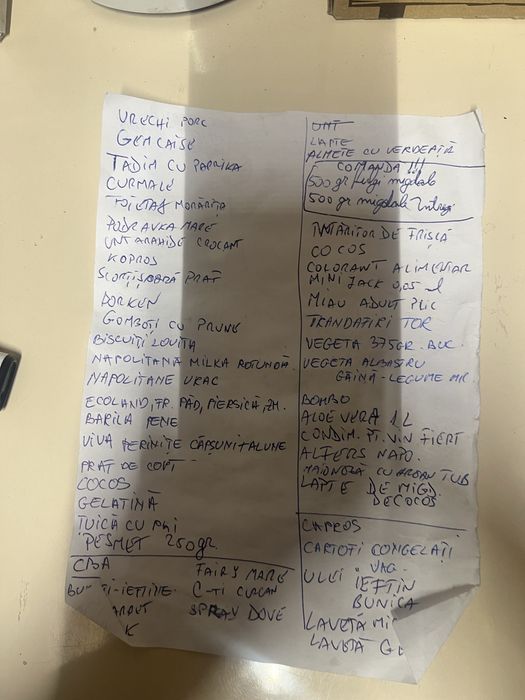 URECHI PORC
GEM CAISE
TADIM CU PAPRIKA
CURMALE
FOIETAJ MORĂRIȚA
PODRAVKA MARE
UNT ARAHIDE CROCANT
KOPROS
SCORȚIȘOARĂ PRAF
DORKEN
GOMBOȚI CU PRUNE
BISCUIȚI LOVITA
NAPOLITANĂ MILKA ROTUNDĂ
NAPOLITANE VRAC
ECOLAND, FR. PĂD, PIERSICĂ, ZM.
BARILA PENE
VIVA PERINIȚE CĂPȘUNI + ALUNE
PRAF DE COPT
COCOS
GELATINĂ
ȚUICĂ CU
PESMET 250gr.
FAIRY MARE
SPRAY DOVE
UNT
LAPTE
ALMETE CU VERDEAȚĂ
COMANDĂ !!!
500 gr fulgi migdale
500 gr migdale întregi
ÎNTĂRITOR DE FRIȘCĂ
COCOS
COLORANT ALIMENTAR
MINI JACK 0,05 l
MIAU ADULT PLIC
TRANDAFIRI TOR
VEGETA 375GR. BUC.
VEGETA ALBASTRU
GĂINĂ - LEGUME MR.
BOMBO
ALOE VERA 1L
CONDIM. PT. VIN FIERT
ALFERS NAPO.
MAIONEZĂ CU TUB
LAPTE DE MIGD.
DE COCOS
CAPROS
CARTOFI CONGELAȚI
ULEI
IEFTIN
BUNICA
LAVETĂ
LAVETĂ